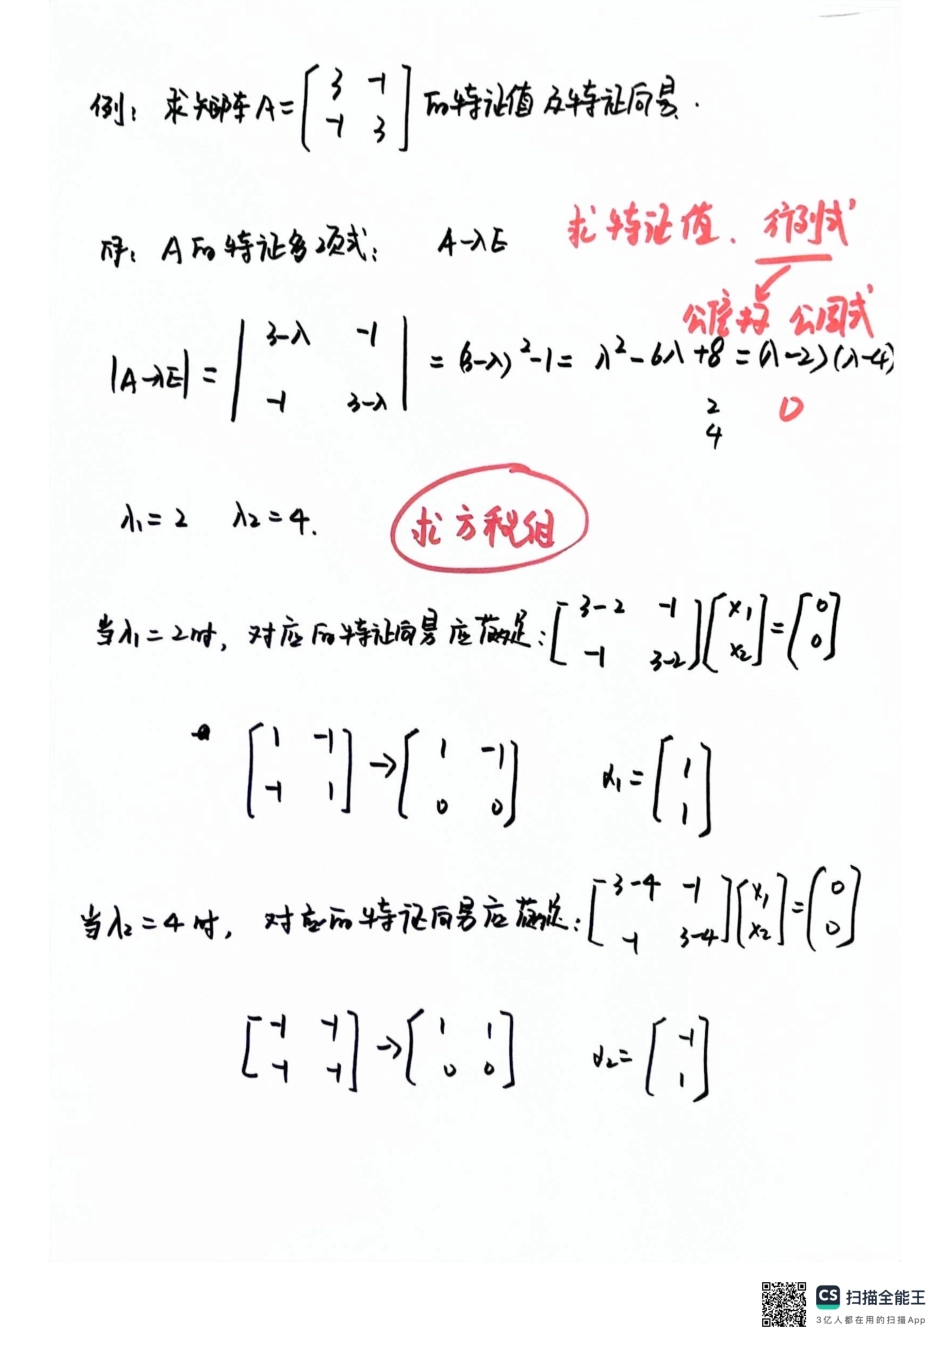 例：求矩阵A=[3 -1 -1 3]的特证值及特证向量.
求特证值、行列式
解：A的特证多项式： A-λE
公倍数 公因式
|A-λE| = |3-λ -1 -1 3-λ| = (3-λ)²-1 = λ²-6λ+8 = (λ-2)(λ-4)
2 0
4
λ₁=2 λ₂=4.
求方程组
当λ₁=2时，对应的特证向量应满足：[3-2 -1 -1 3-2][x₁ x₂]=[0 0]
[1 -1 -1 1]→[1 -1 0 0] α₁=[1 1]
当λ₂=4时，对应的特证向量应满足：[3-4 -1 -1 3-4][x₁ x₂]=[0 0]
[-1 -1 -1 -1]→[1 1 0 0] α₂=[-1 1]
CS 扫描全能王
3亿人都在用的扫描App